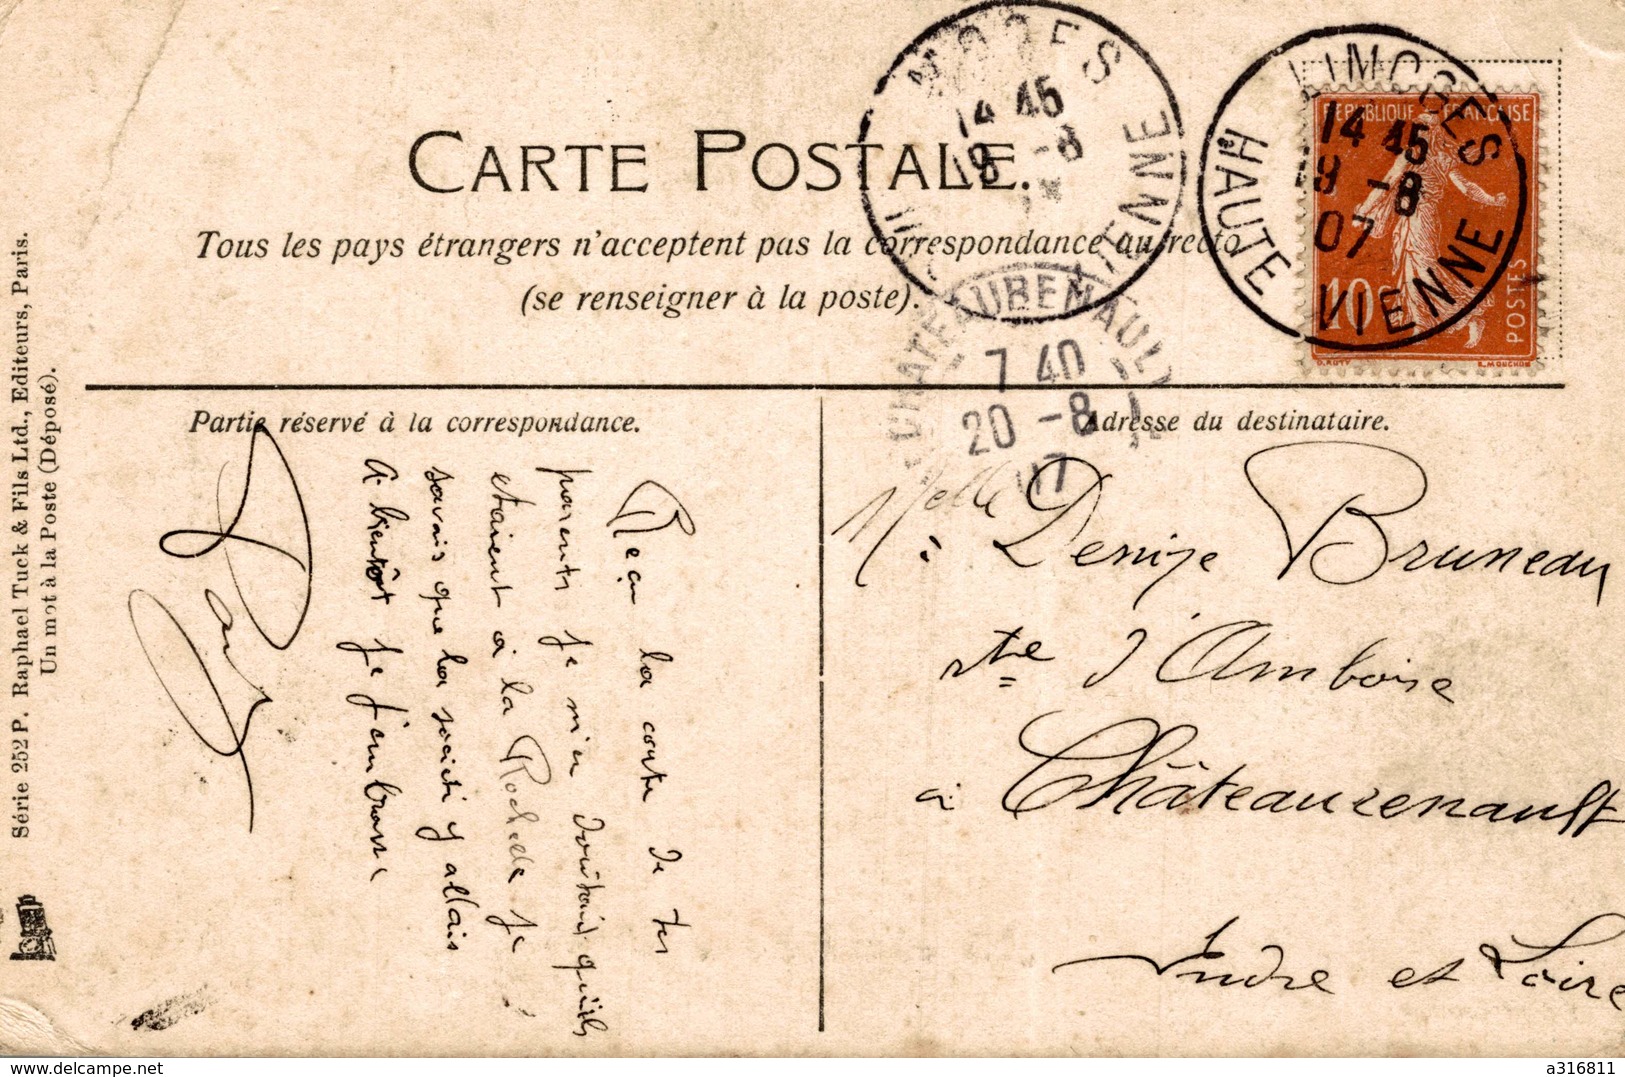 CARTE POSTALE.
Tous les pays étrangers n'acceptent pas la correspondance au recto
(se renseigner à la poste).
LIMOGES
14 45
19 -8
HAUTE VIENNE
LIMOGES
14 45
19 -8
07
HAUTE VIENNE
REPUBLIQUE FRANÇAISE
10c
POSTES
O. ROTY
E. MOUCHON
CHATEAURENAULT
7 40
20 -8
07
Partie réservé à la correspondance.
Adresse du destinataire.
Reçu la carte de tes
parents je m'en doutais qu'ils
etaient à la Rochelle je
savais que la société y allais
A bientôt je t'embrasse
Melle Denise Bruneau
rte d'Amboise
à Châteaurenault
Indre et Loire
Série 252 P. Raphael Tuck & Fils Ltd., Editeurs, Paris.
Un mot à la Poste (Déposé).
delcampe.net
a316811